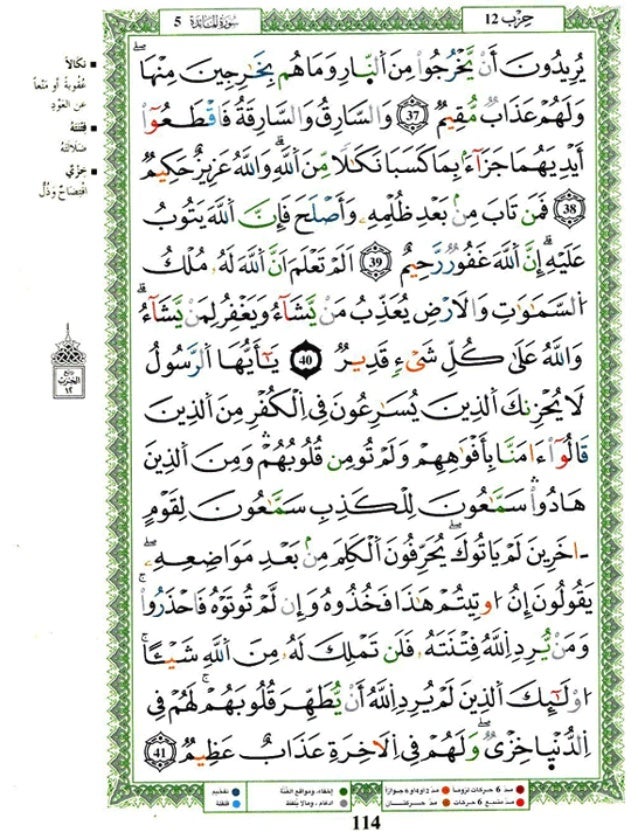 حِزْب 12
سُورَةُ المَائِدَة 5
يُرِيدُونَ أَنْ يَّخْرُجُواْ مِنَ اَ۬لنَّارِ وَمَا هُم بِخَٰرِجِينَ مِنْهَاۖ
وَلَهُمْ عَذَابٌ مُّقِيمٌ 37 وَالسَّارِقُ وَالسَّارِقَةُ فَاقْطَعُوٓاْ
أَيْدِيَهُمَا جَزَآءَۢ بِمَا كَسَبَا نَكَٰلاٗ مِّنَ اَ۬للَّهِۗ وَاللَّهُ عَزِيزٌ حَكِيمٌ
38 فَمَن تَابَ مِنۢ بَعْدِ ظُلْمِهِۦ وَأَصْلَحَ فَإِنَّ اَ۬للَّهَ يَتُوبُ
عَلَيْهِۗ إِنَّ اَ۬للَّهَ غَفُورٞ رَّحِيمٌ 39 اَلَمْ تَعْلَمَ اَنَّ اَ۬للَّهَ لَهُۥ مُلْكُ
اُ۬لسَّمَٰوَٰتِ وَالَارْضِ يُعَذِّبُ مَنْ يَّشَآءُ وَيَغْفِرُ لِمَنْ يَّشَآءُۗ
وَاللَّهُ عَلَىٰ كُلِّ شَےْءٖ قَدِيرٞ 40 يَٰٓأَيُّهَا اَ۬لرَّسُولُ
لَا يُحْزِنكَ اَ۬لذِينَ يُسَٰرِعُونَ فِے اِ۬لْكُفْرِ مِنَ اَ۬لذِينَ
قَالُوٓاْ ءَامَنَّا بِأَفْوَٰهِهِمْ وَلَمْ تُومِن قُلُوبُهُمْۛ وَمِنَ اَ۬لذِينَ
هَادُواْۛ سَمَّٰعُونَ لِلْكَذِبِ سَمَّٰعُونَ لِقَوْمٍ
ـاخَرِينَ لَمْ يَاتُوكَۖ يُحَرِّفُونَ اَ۬لْكَلِمَ مِنۢ بَعْدِ مَوَاضِعِهِۦۖ
يَقُولُونَ إِنُ اوتِيتُمْ هَٰذَا فَخُذُوهُ وَإِن لَّمْ تُوتَوْهُ فَاحْذَرُواْۚ
وَمَنْ يُّرِدِ اِ۬للَّهُ فِتْنَتَهُۥ فَلَن تَمْلِكَ لَهُۥ مِنَ اَ۬للَّهِ شَيْـٔاًۚ
اوْلَٰٓئِكَ اَ۬لذِينَ لَمْ يُرِدِ اِ۬للَّهُ أَنْ يُّطَهِّرَ قُلُوبَهُمْۚ لَهُمْ فِے
اِ۬لدُّنْيَا خِزْيٞۖ وَلَهُمْ فِے اِ۬لَاخِرَةِ عَذَابٌ عَظِيمٞ 41
نكالاً
عُقُوبةً أو مَنْعاً
عن العَوْدِ
فِتْنَتَهُ
ضَلالتَهُ
خِزْيٌ
افْتِضَاحٌ وَذُلٌّ
رابع
الحزب
١٢
مدّ 6 حركات لزوماً
مدّ 2 أو 4 أو 6 جوازاً
إخفاء، ومواقع الغُنَّة
تفخيم
مدّ مشبع 6 حركات
مدّ حركتان
ادغام، ومالا يلفظ
قلقلة
114